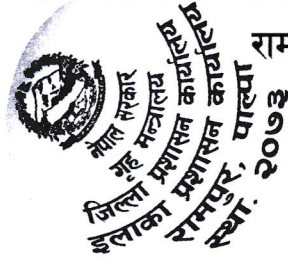 नेपाल सरकार
गृह मन्त्रालय
जिल्ला प्रशासन कार्यालय
इलाका प्रशासन कार्यालय
रामपुर, पाल्पा
स्था. २०७३
राम